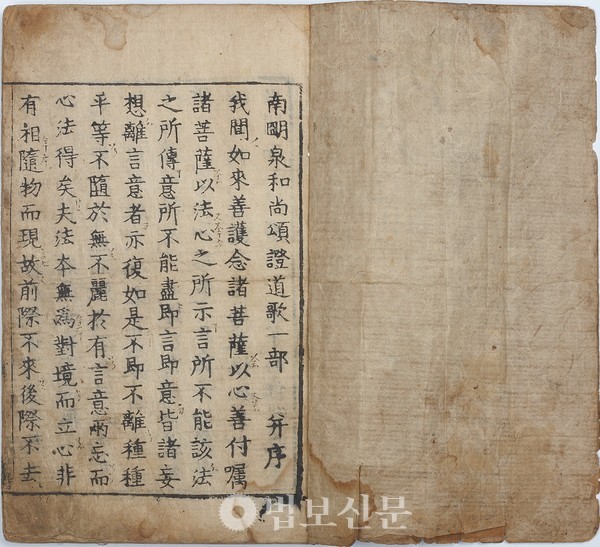 南明泉和尚頌證道歌一部 并序
我聞如來善護念諸菩薩以心善付囑
諸菩薩以法心之所示言所不能該法
之所傳意所不能盡即言即意皆諸妄
想離言意者亦復如是不即不離種種
平等不隨於無不麗於有言意兩忘而
心法得矣夫法本無爲對境而立心非
有相隨物而現故前際不來後際不去
법보신문